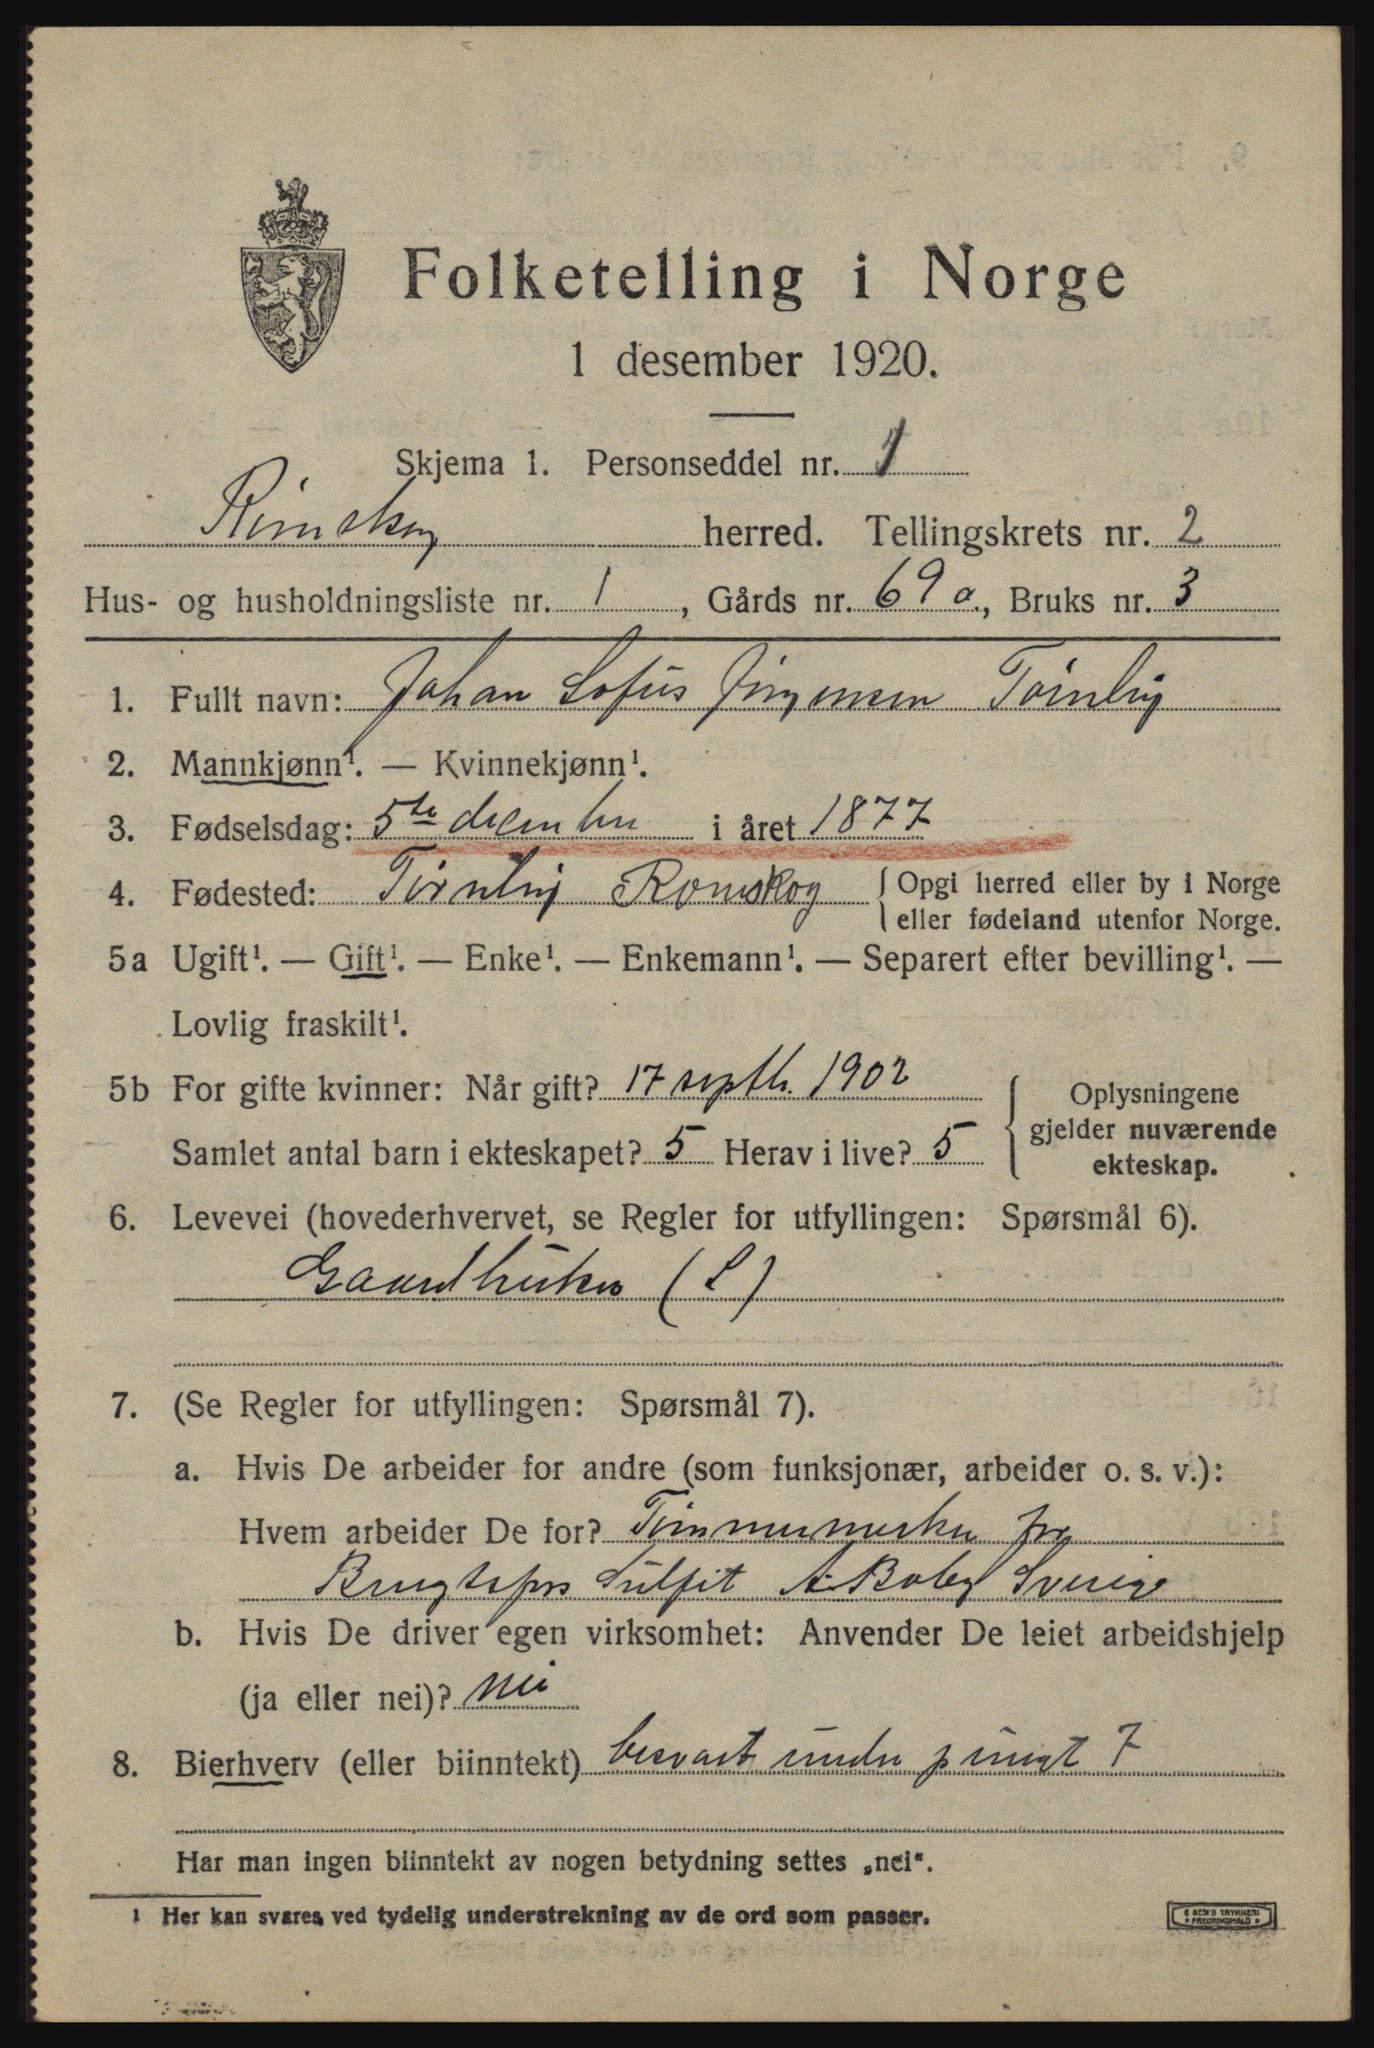 Folketelling i Norge
1 desember 1920.
Skjema 1. Personseddel nr. 1
Rømskog herred. Tellingskrets nr. 2
Hus- og husholdningsliste nr. 1, Gårds nr. 69 a., Bruks nr. 3
1. Fullt navn: Johan Sofus Jørgensen Tørnby
2. Mannkjønn¹. — Kvinnekjønn¹.
3. Fødselsdag: 5te december i året 1877
4. Fødested: Tørnby Rømskog { Opgi herred eller by i Norge
eller fødeland utenfor Norge.
5a Ugift¹. — Gift¹. — Enke¹. — Enkemann¹. — Separert efter bevilling¹. —
Lovlig fraskilt¹.
5b For gifte kvinner: Når gift? 17 septbr. 1902
Samlet antal barn i ekteskapet? 5 Herav i live? 5
Oplysningene
gjelder nuværende
ekteskap.
6. Levevei (hovederhvervet, se Regler for utfyllingen: Spørsmål 6).
Gaardbruker (S)
7. (Se Regler for utfyllingen: Spørsmål 7).
a. Hvis De arbeider for andre (som funksjonær, arbeider o. s. v.):
Hvem arbeider De for? Tømmermerker for
Sulfit A. Bolag Sverige
b. Hvis De driver egen virksomhet: Anvender De leiet arbeidshjelp
(ja eller nei)? nei
8. Bierhverv (eller biinntekt) besvart under pungt 7
Har man ingen biinntekt av nogen betydning settes „nei“.
1 Her kan svares ved tydelig understrekning av de ord som passer.
E SEM'S TRYKKERI
FREDRIKSHALD